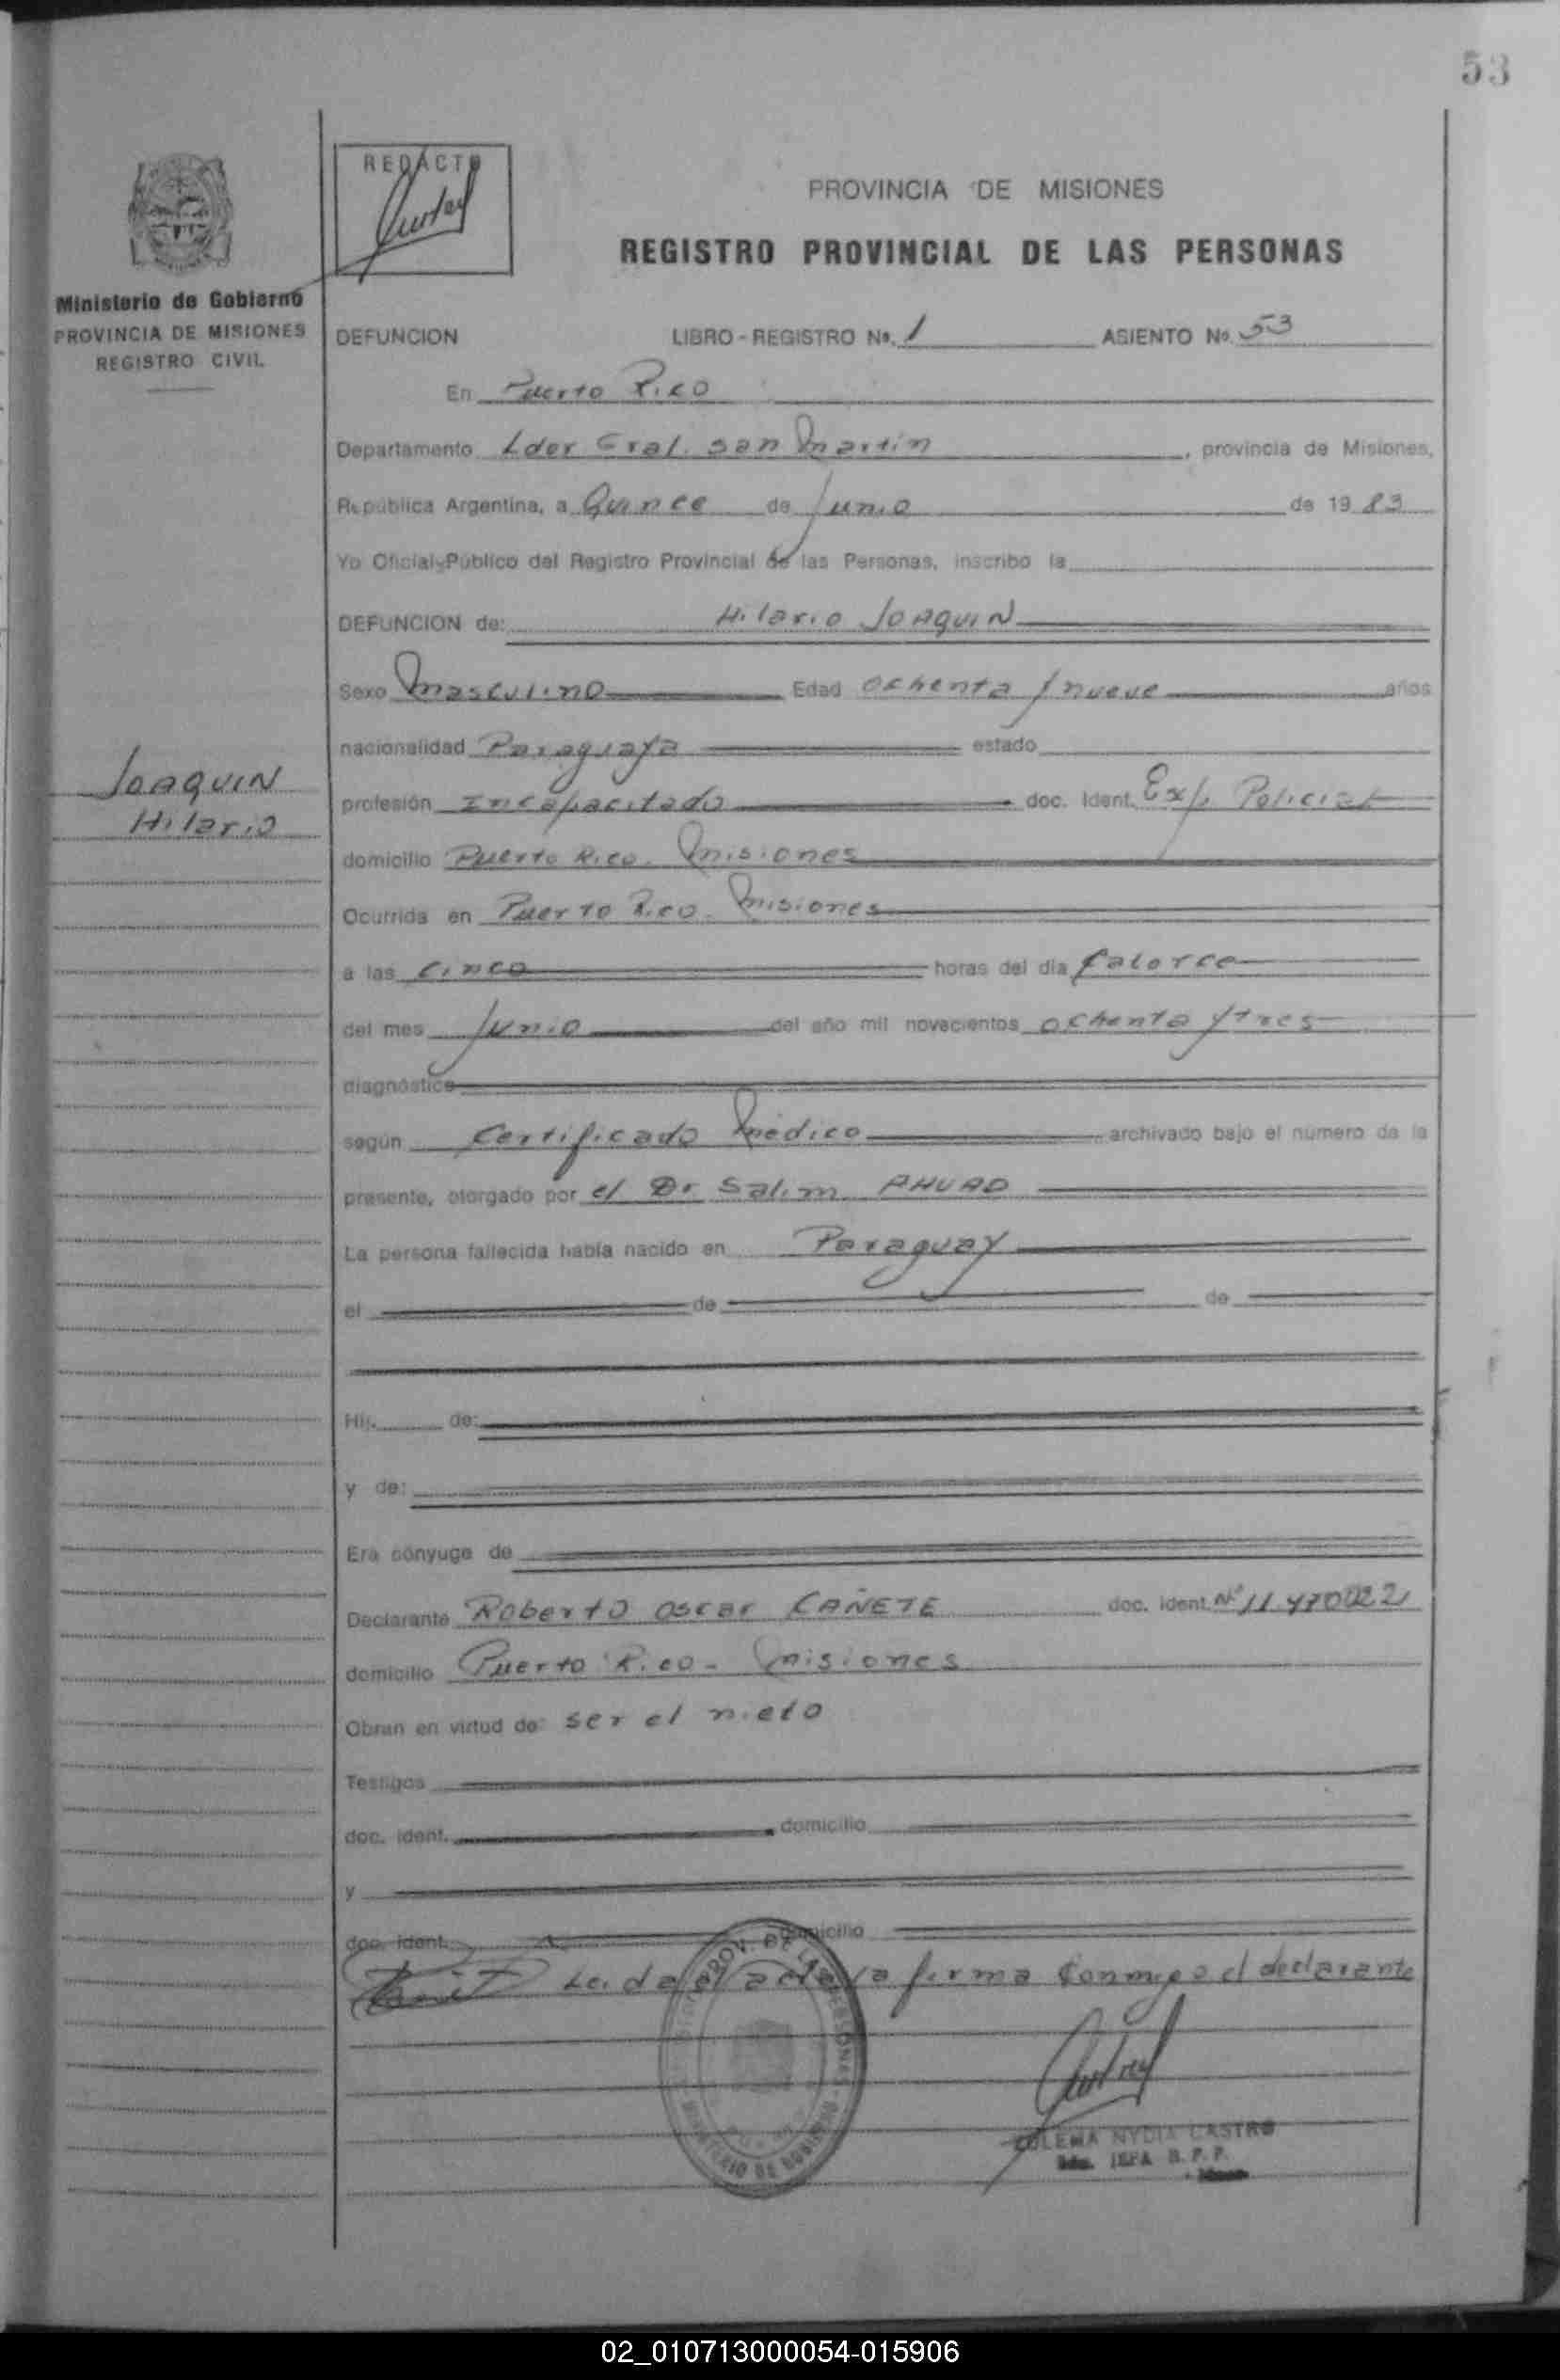 53
REDACTO
PROVINCIA DE MISIONES
REGISTRO PROVINCIAL DE LAS PERSONAS
Ministerio de Gobierno
PROVINCIA DE MISIONES
REGISTRO CIVIL
DEFUNCION LIBRO - REGISTRO No. 1 ASIENTO No. 53
En Puerto Rico
Departamento Lder Gral. san martin, provincia de Misiones,
República Argentina, a Quince de Junio de 19 83
Yo Oficial Público del Registro Provincial de las Personas, inscribo la
DEFUNCION de: Hilario JOAQUIN
Sexo masculino Edad ochenta y nueve años
nacionalidad Paraguaya estado
JOAQUIN
Hilario
profesión Incapacitado doc. Ident. Exp. Policial
domicilio Puerto Rico. misiones
Ocurrida en Puerto Rico. misiones
a las Cinco horas del día Catorce
del mes Junio del año mil novecientos ochenta y tres
diagnóstico
según Certificado medico archivado bajo el número de la
presente, otorgado por el Dr Salim AHUAD
La persona fallecida había nacido en Paraguay
el de de
Hij de:
y de:
Era cónyuge de
Declarante Roberto Oscar CAÑETE doc. Ident. Nº
domicilio Puerto Rico - misiones
Obran en virtud de: ser el nieto
Testigos
doc. ident. domicilio
y
doc. ident. domicilio
Leida el acta la firma Conmigo el declarante
NYDIA CASTRO
JEFA R. P. P.
02_010713000054-015906